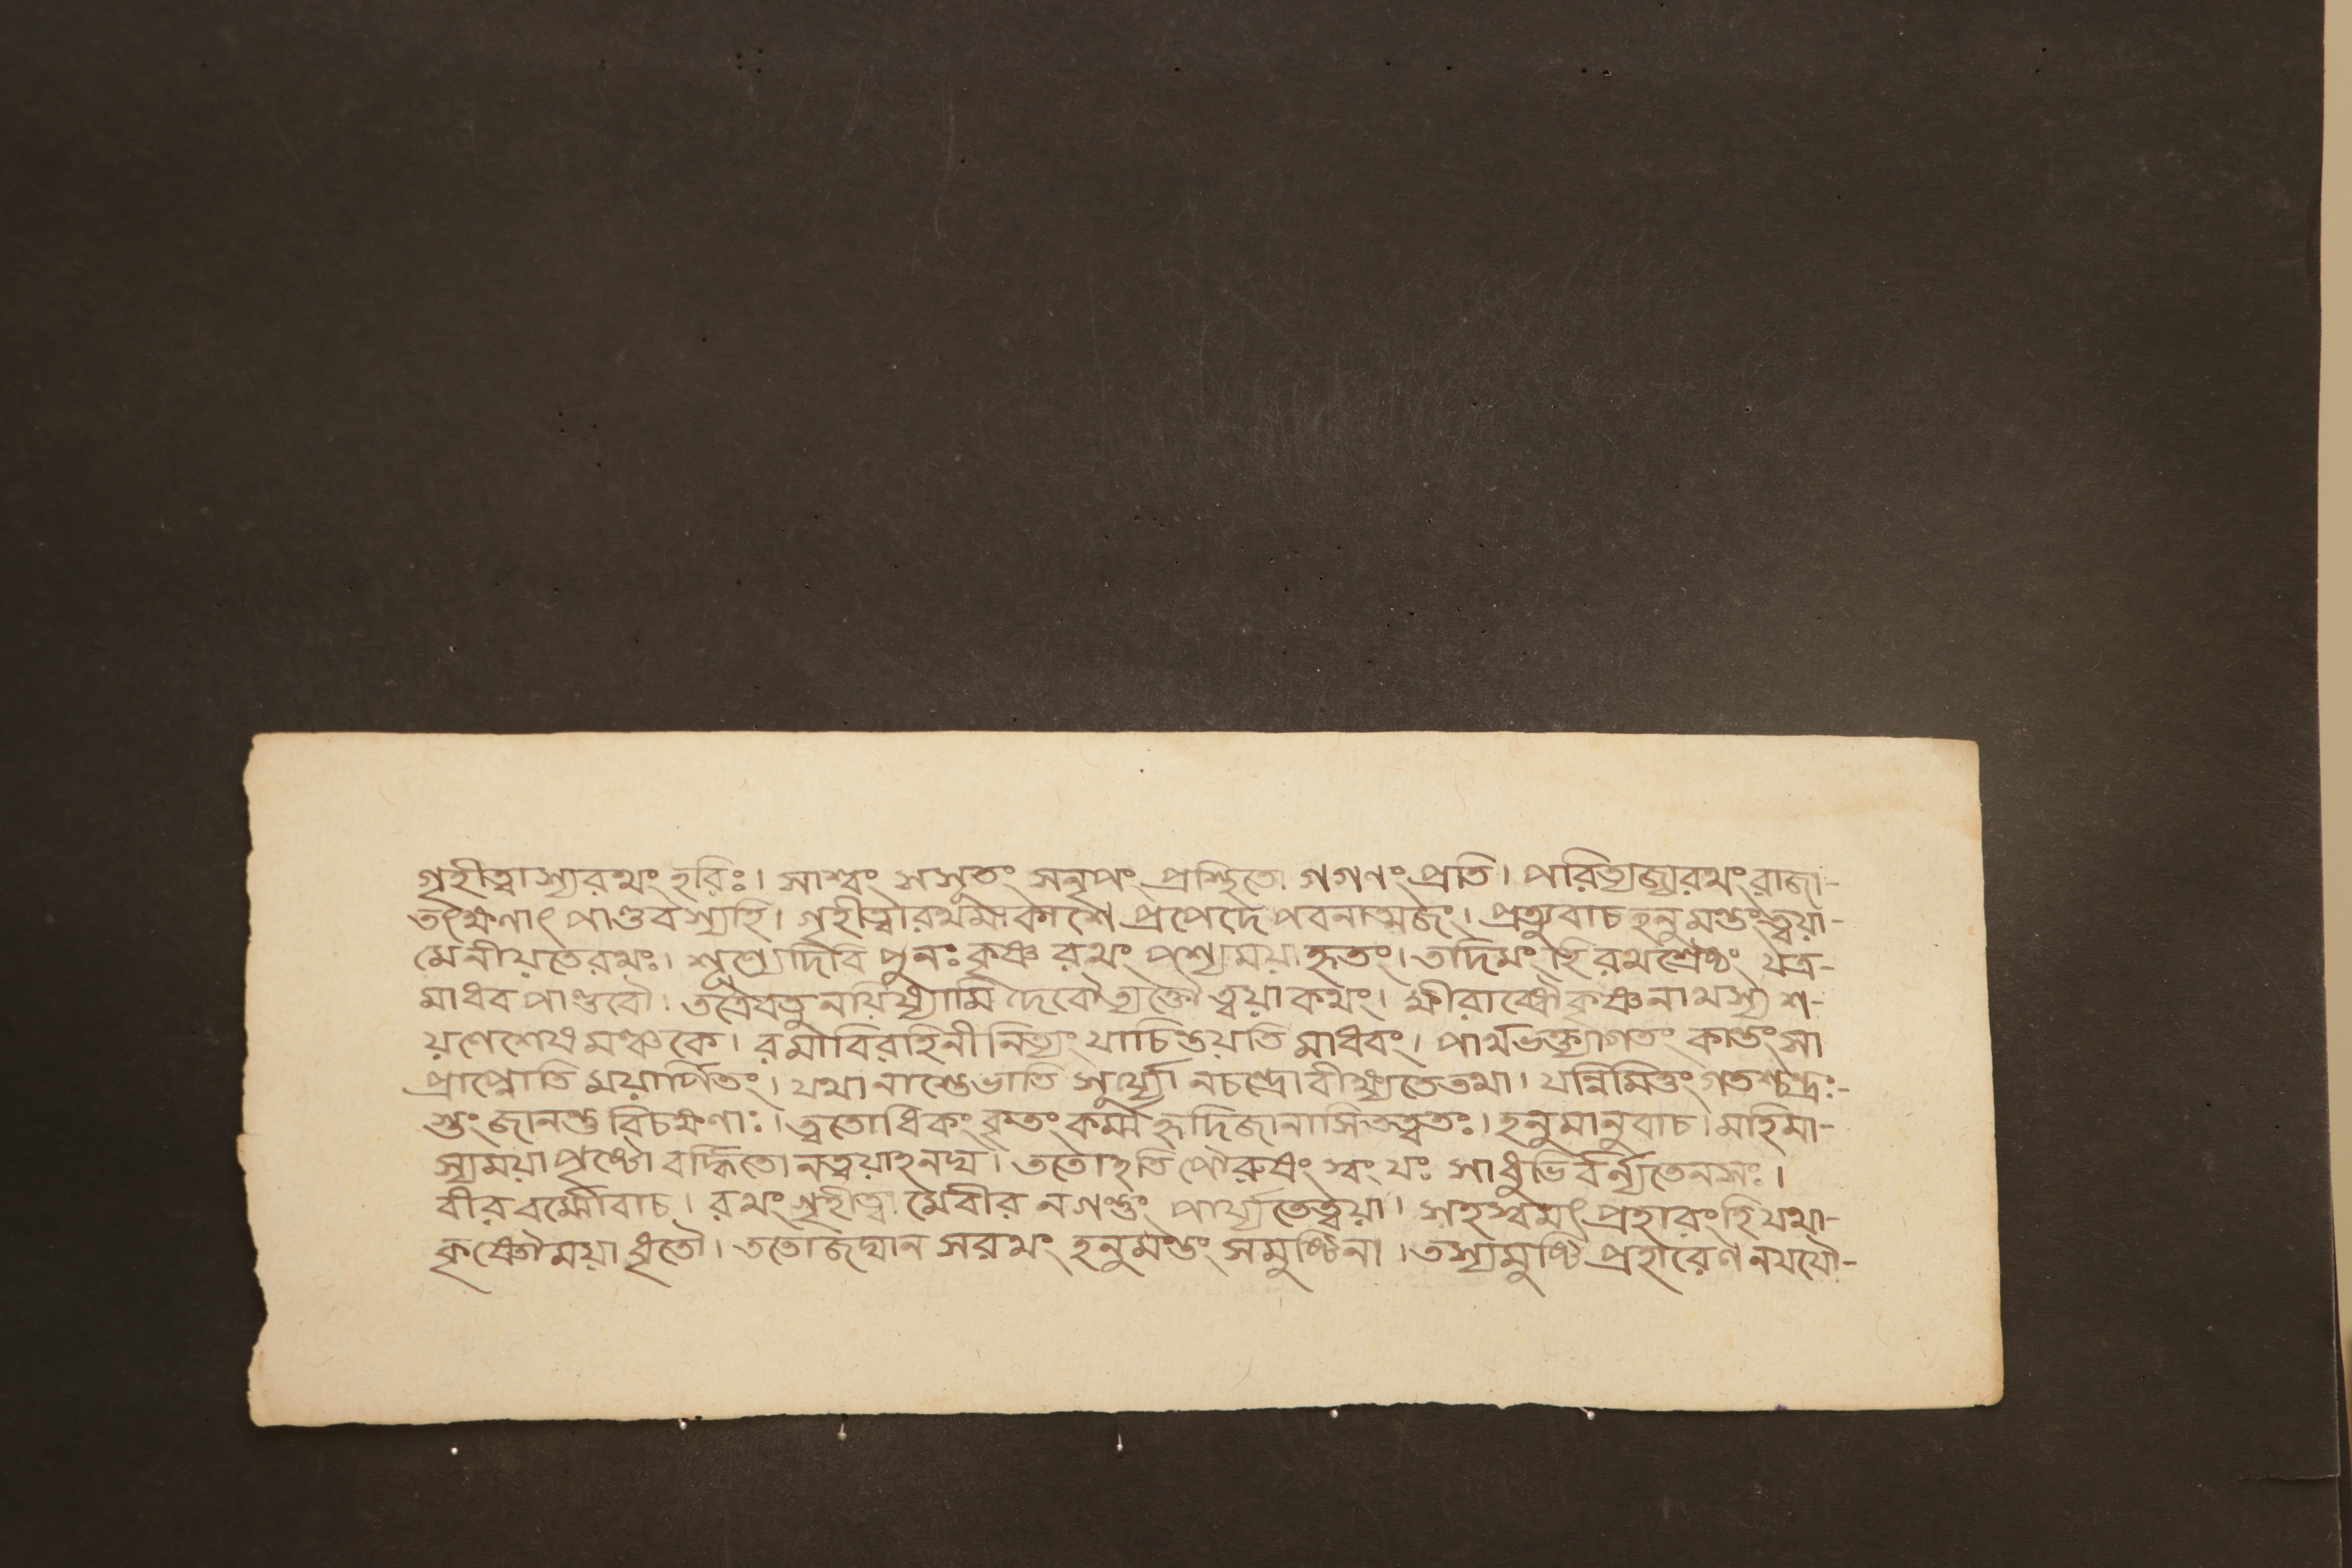 গৃহীত্বাস্যরথং হরিঃ। সাশ্বং সসূতং সনৃপং প্রস্থিতো গগণং প্রতি। পরিত্যজ্যরথং রাজা-
তৎক্ষণাৎ পাণ্ডবস্যহি। গৃহীত্বারথমাকাশে প্রপেদে পবনাত্মজং। প্রত্যুবাচ হনুমন্তং ত্বয়া-
মেনীয়তেরথঃ। শূণ্যেদিবি পুনঃ কৃষ্ণ রথং পশ্যেময়া হৃতং। তদিমং হি রথশ্রেষ্ঠং যত্র-
মাধব পাণ্ডবৌ। তত্রৈবতু নয়িষ্যামি দেবৌত্যক্তৌ ত্বয়া কথং। ক্ষীরাব্ধৌকৃষ্ণনাথস্য শ-
য়ণেশেষ মঞ্চকে। রমাবিরাহিনী নিত্যং যাচিন্তয়তি মাধবং। পার্থভক্ত্যাগতং কান্তং সা
প্রাপ্নোতি ময়ার্পিতং। যথা নাস্তেভাতি সূর্য্যো নচন্দ্রো বীক্ষ্যতেতথা। যন্নিমিত্তং গতশ্চন্দ্রঃ-
স্তং জানন্তু বিচক্ষণাঃ। ত্বতোধিকং কৃতং কর্ম্ম হৃদিজানাসিতত্বতঃ। হনুমানুবাচ। মহিমা-
স্যময়া পৃষ্টো বর্দ্ধিতো নত্বয়াহনঘ। ততোহতি পৌরুষং স্বং যঃ সাধুভি র্বর্ন্যতেনসঃ।
বীরবর্ম্মোবাচ। রথং গৃহীত্বা মেবীর নগন্তুং পার্য্যতেত্বয়া। সহস্বমৎ প্রহারং হি যথা-
কৃষ্ণৌময়া ধৃতৌ। ততোজঘান সরথং হনুমন্তং সমুষ্টিনা। তস্যমুষ্টি প্রহারেণ নযযৌ-